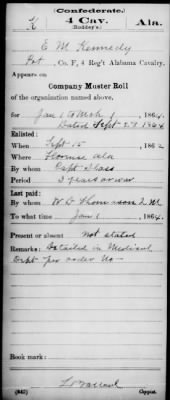 (Confederate.)
K 4 Cav. Ala.
E M Kennedy
Pvt, Co. F, 4 Reg't Alabama Cavalry.
Appears on
Company Muster Roll
of the organization named above,
for Jan 1 to Mch 1, 1864.
Dated Sept 29 1864
Enlisted:
When Sept 15, 1862
Where Florence Ala
By whom Capt
Period 3 years or war
Last paid:
By whom W D Thomason Q M
To what time Jan 1, 1864.
Present or absent Not stated
Remarks: Detailed in Medical
Dept per order No
Book mark:
(642) Copyist.